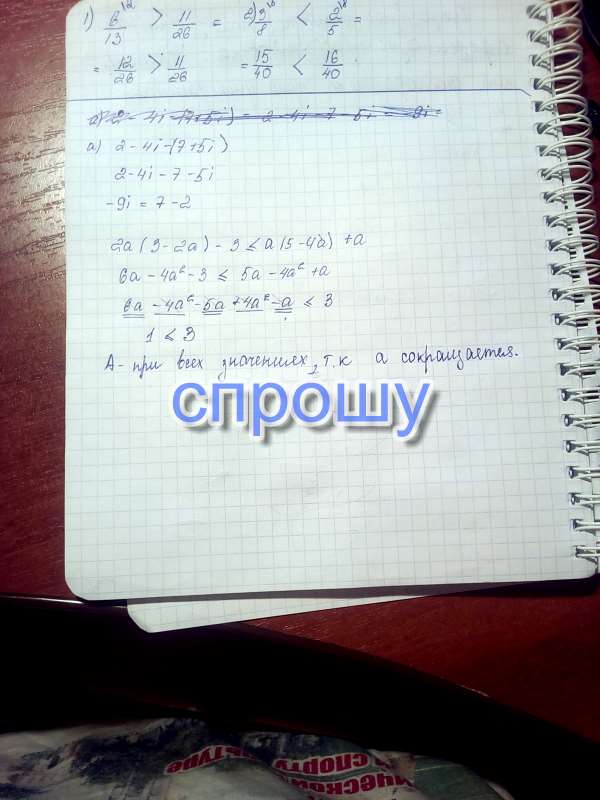 1) 6/13 > 11/26 = 2) 3/8 < 2/5 =
= 12/26 > 11/26 = 15/40 < 16/40
а) 2 - 4i - (7+5i)
2 - 4i - 7 - 5i
-9i = 7 - 2
2a(3-2a) - 3 ≤ a(5-4a) + a
6a - 4a² - 3 ≤ 5a - 4a² + a
6a - 4a² - 5a + 4a² - a ≤ 3
1 ≤ 3
А - при всех значениях, т.к а сокращается.
спрошу
и спорту